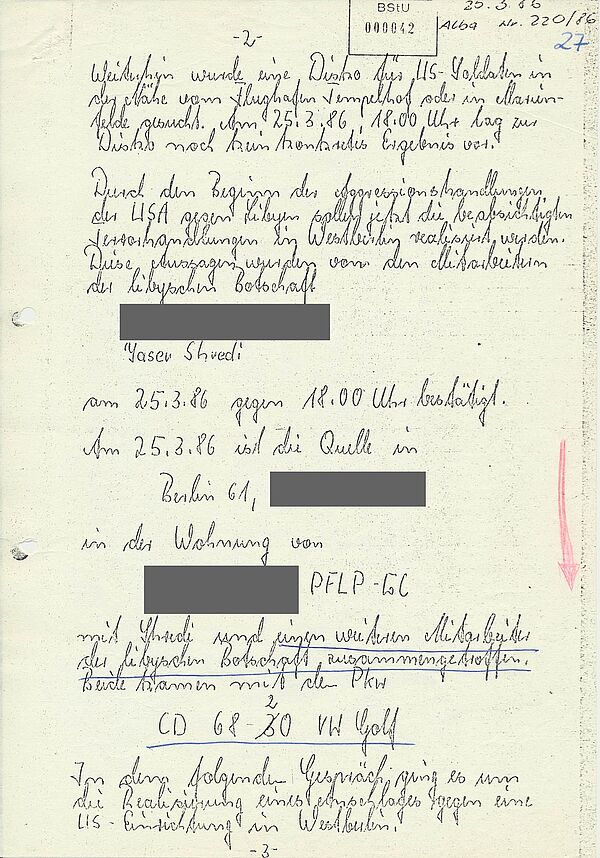 25.3.86
BStU
000042
Alba Nr. 220/86
27
-2-
Weiterhin wurde eine Disko für US-Soldaten in
der Nähe vom Flughafen Tempelhof oder in Marien-
felde gesucht. Am 25.3.86, 18.00 Uhr lag zur
Disko noch kein konkretes Ergebnis vor.
Durch den Beginn der Aggressionshandlungen
der USA gegen Libyen sollen jetzt die beabsichtigten
Terrorhandlungen in Westberlin realisiert werden.
Diese Aussagen wurden von den Mitarbeitern
der libyschen Botschaft
Yaser Shredi
am 25.3.86 gegen 18.00 Uhr bestätigt.
Am 25.3.86 ist die Quelle in
Berlin 61,
in der Wohnung von
PFLP-GC
mit Shredi und einen weiteren Mitarbeiter
der libyschen Botschaft zusammengetroffen.
Beide kamen mit dem Pkw
2
CD 68-30 VW Golf
In dem folgenden Gespräch ging es um
die Realisierung eines Anschlages gegen eine
US-Einrichtung in Westberlin.
-3-